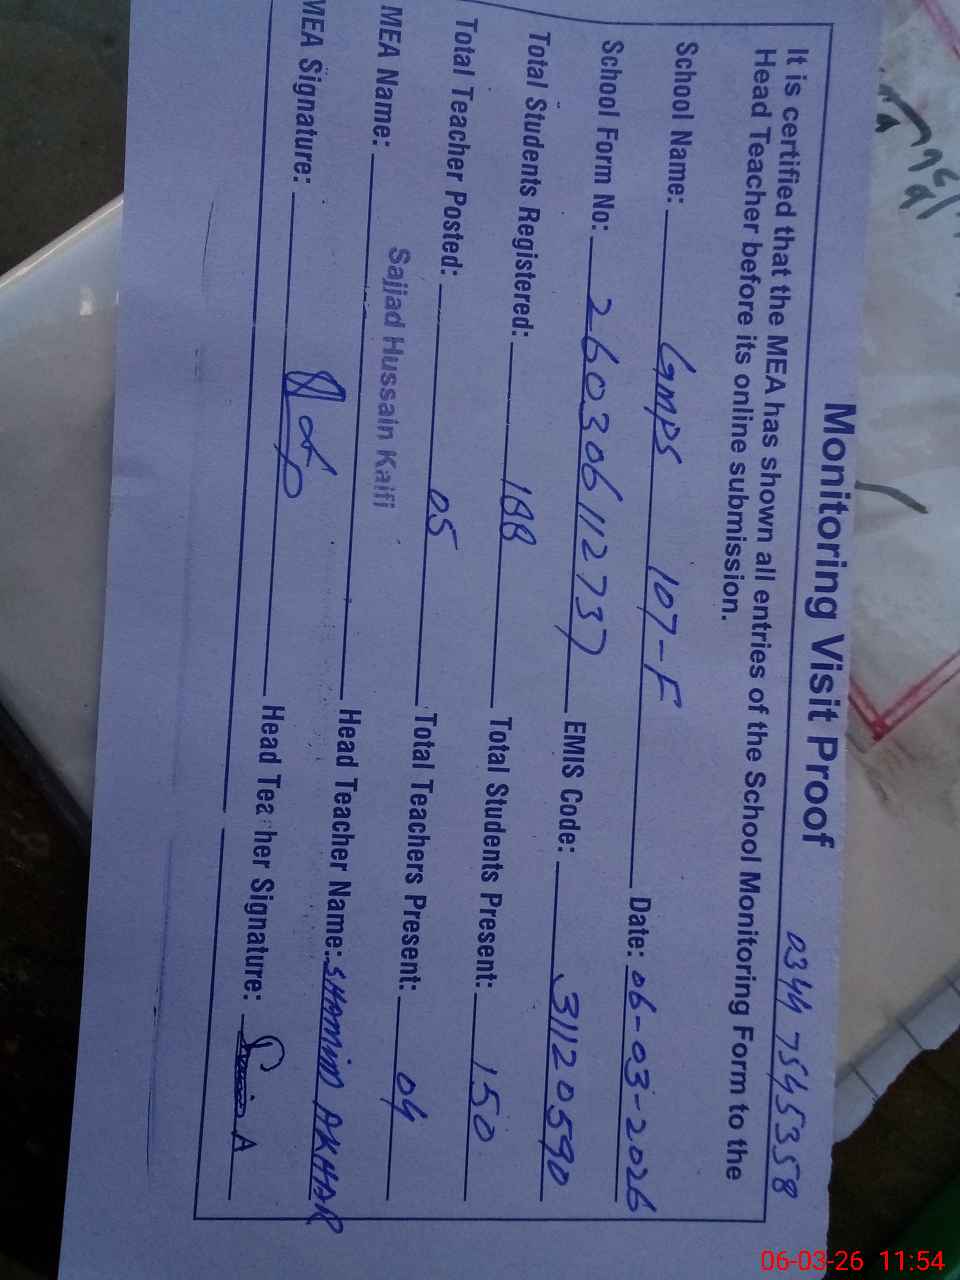 Monitoring Visit Proof
0344 7545358
It is certified that the MEA has shown all entries of the School Monitoring Form to the
Head Teacher before its online submission.
School Name: GMPS 107-F Date: 06-03-2026
School Form No: 260306112737 EMIS Code: 31120590
Total Students Registered: 188 Total Students Present: 150
Total Teacher Posted: 05 Total Teachers Present: 04
MEA Name: Sajjad Hussain Kaifi Head Teacher Name: SHAMIM AKHAR
MEA Signature: Head Teacher Signature:
06-03-26 11:54